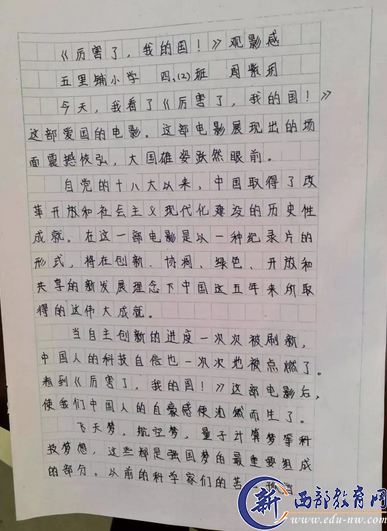 《厉害了，我的国！》观影感
五里铺小学 四、(2)班 周紫玥
今天，我看了《厉害了，我的国！》
这部爱国的电影。这部电影展现出的场
面震撼恢弘，大国雄姿跃然眼前。
自党的十八大以来，中国取得了改
革开放和社会主义现代化建设的历史性
成就。在这一部电影是以一种纪录片的
形式，将在创新、协调、绿色、开放和
共享的新发展理念下中国这五年来所取
得的这伟大成就。
当自主创新的进度一次次被刷新，
中国人的科技自信也一次次地被点燃了。
看到《厉害了，我的国！》这部电影后，
使我们中国人的自豪感使油然而生了。
飞天梦，航空梦，量子计算梦等科
技梦想，这些都是强国梦的最重要组成
的部分。从前的科学家们的
新 西部教育网
www.edu-nw.com